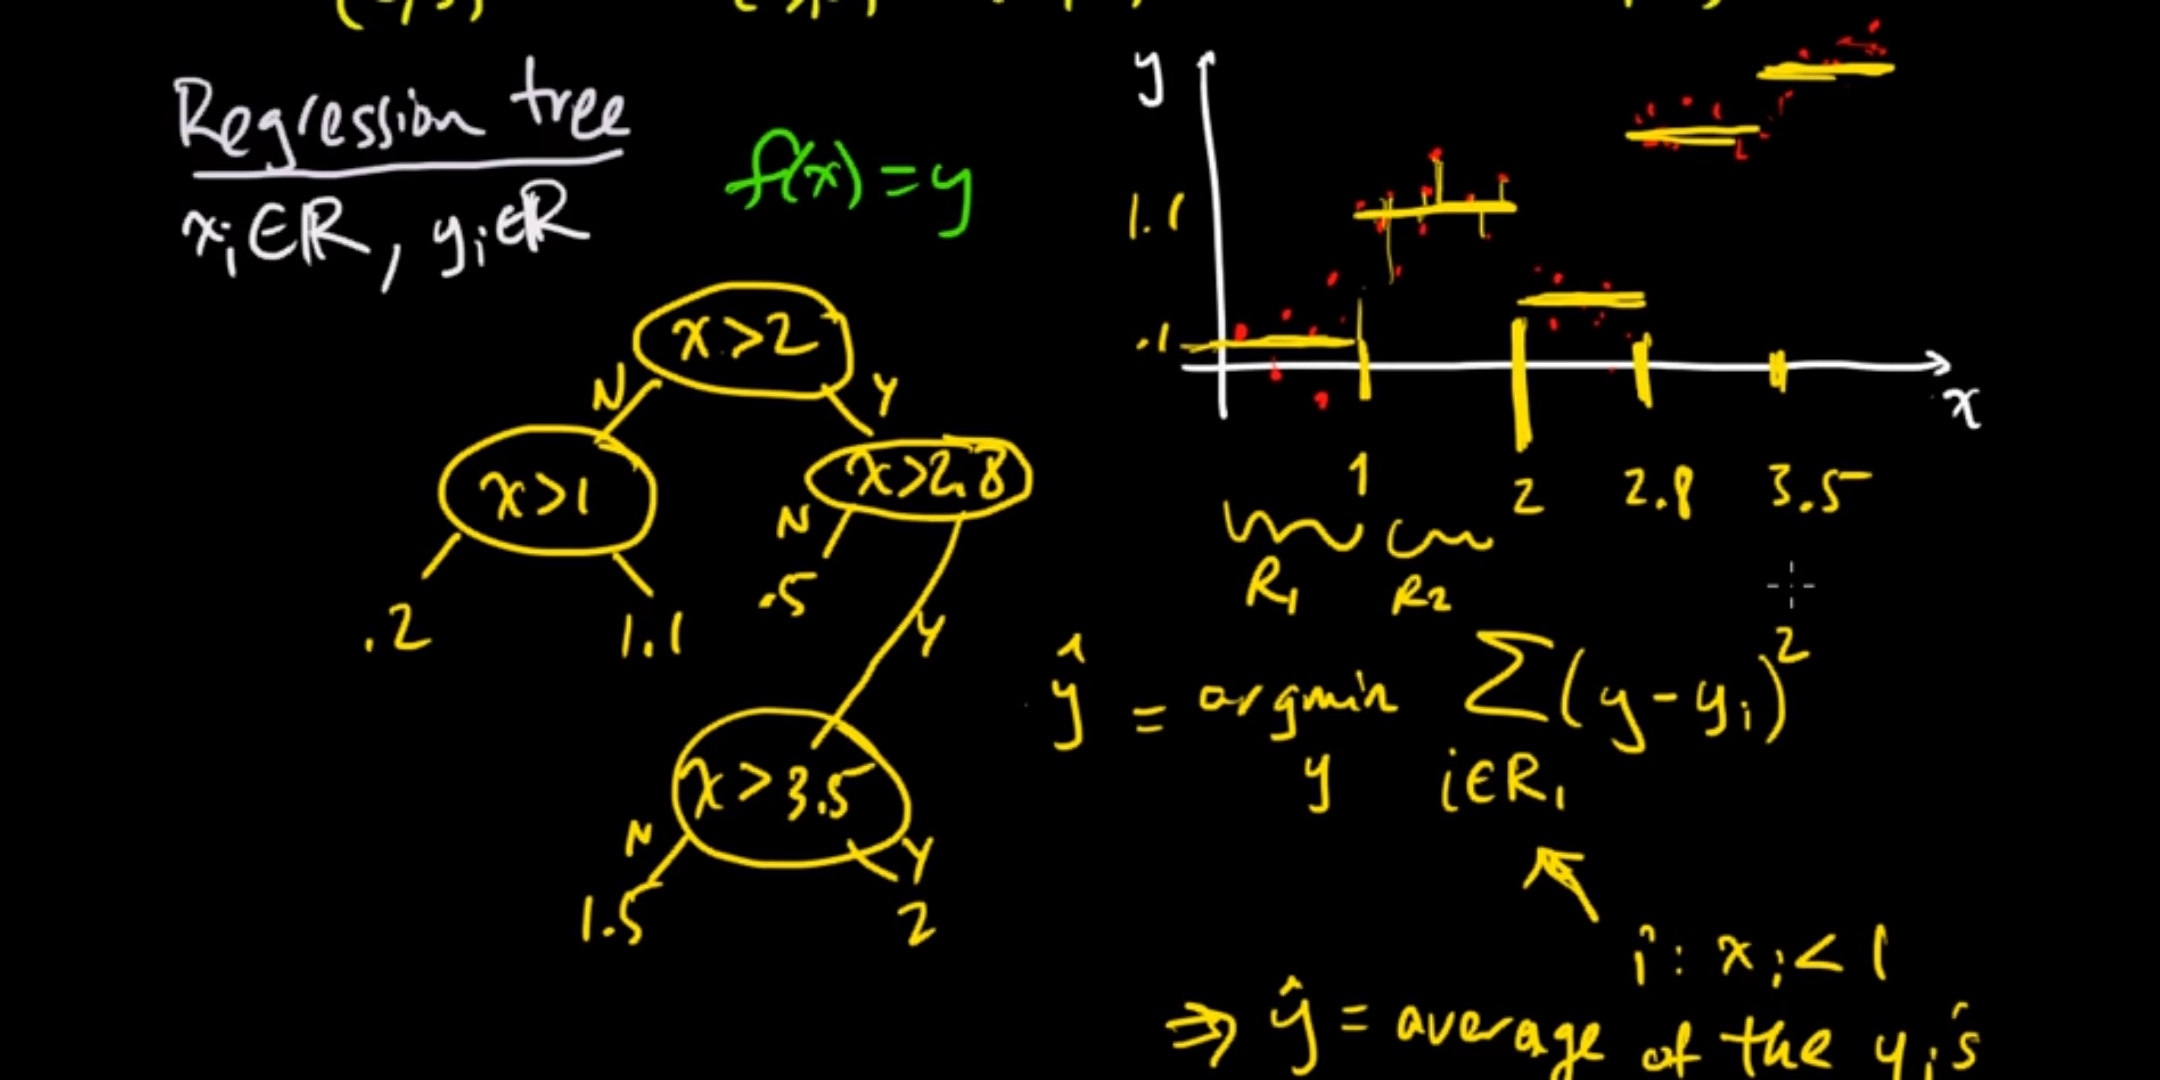 Regression tree
x_i ∈ ℝ, y_i ∈ ℝ
f(x) = y
x > 2
N
Y
x > 1
x > 2.8
.2
1.1
N
.5
Y
x > 3.5
N
Y
1.5
2
y
1.1
.1
x
1
2
2.8
3.5
R_1
R_2
ŷ = argmin Σ (y - y_i)^2
y
i ∈ R_1
i : x_i < 1
⇒ ŷ = average of the y_i's